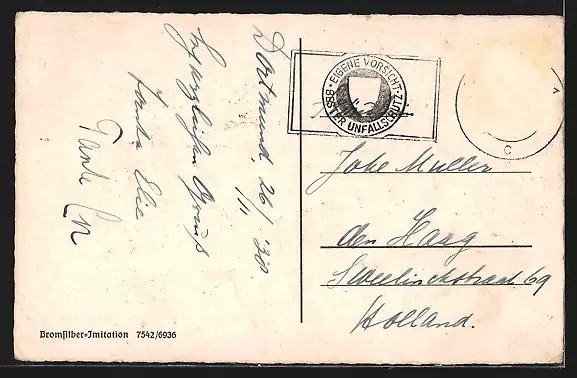 Dortmund 26/11 '30.
Herzlichen Gruß
Tante Else
Tante
EIGENE VORSICHT
BESTER UNFALLSCHUTZ
Joke Muller
den Haag
Sweelinckstraat 69
Holland.
Bromsilber-Imitation 7542/6936
C